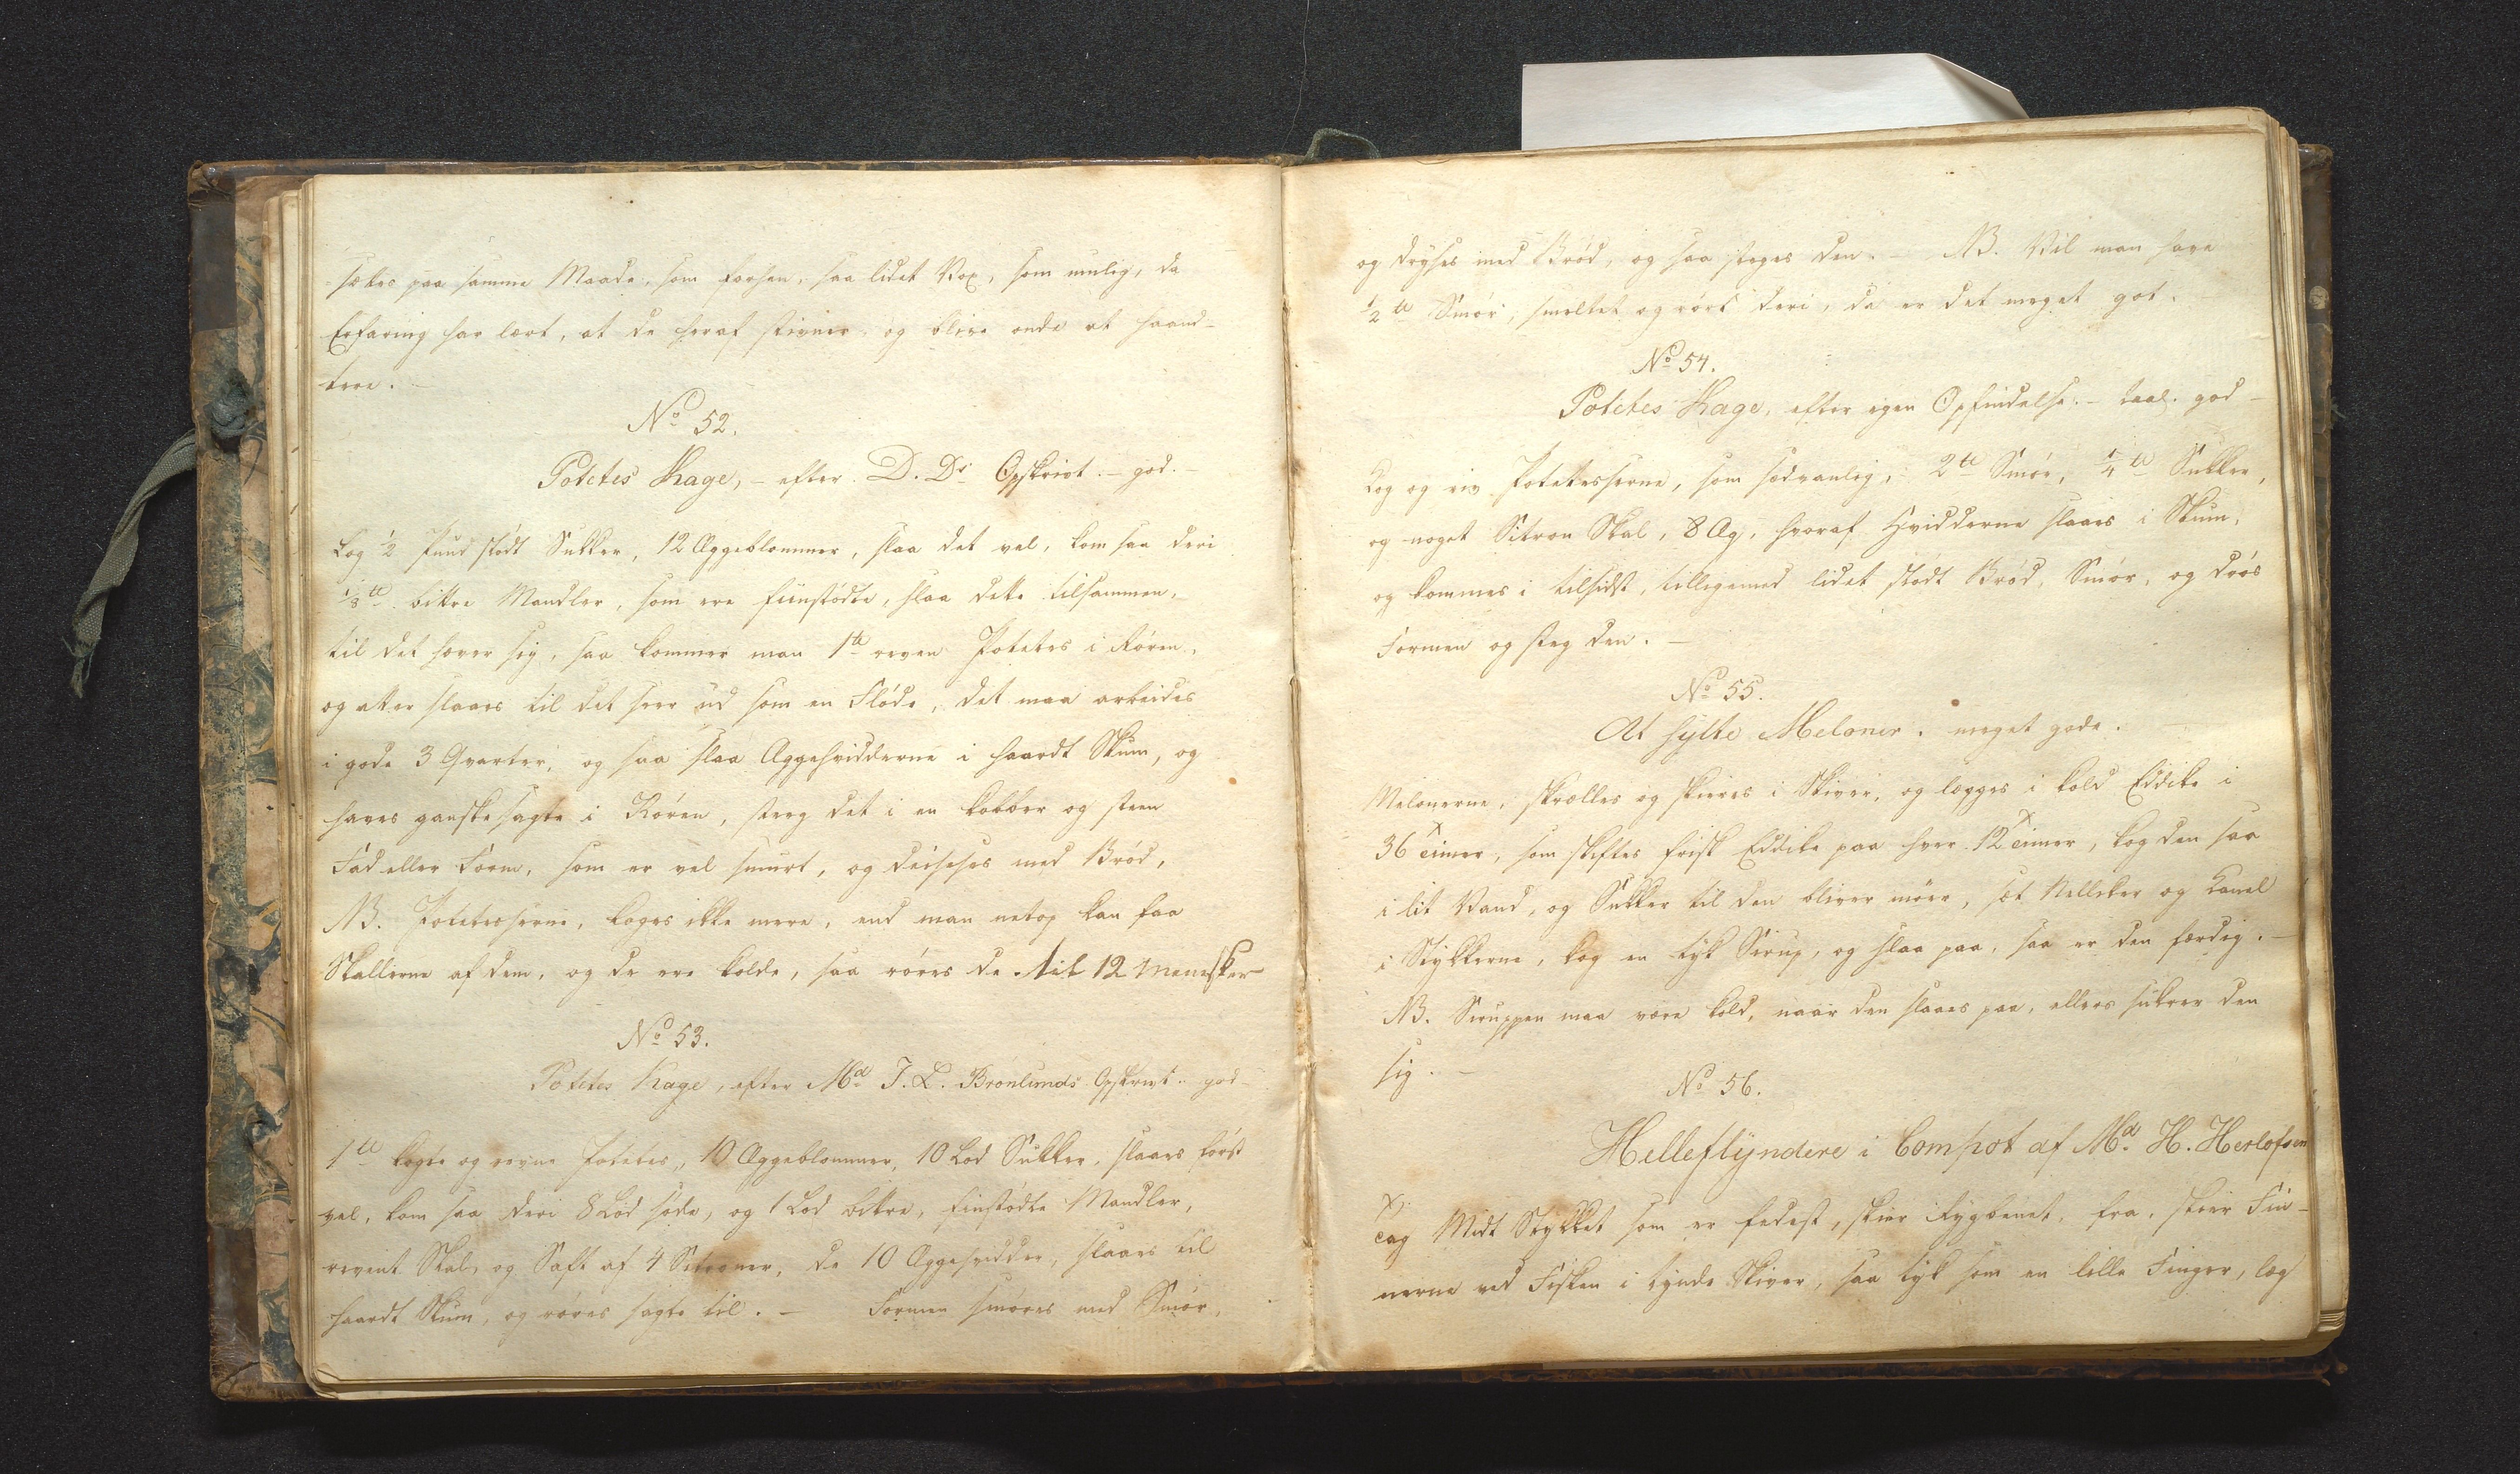 sættes paa samme Maade, som forhen, saa lidet Vox, som mulig, da
Erfaring har lært, at de heraf stivner og blive onde at haand-
tere. –
No 52.
Potetes Kage, – efter D. Ds Opskrivt. – god. –
Tag 1/2 Pund stødt Sukker, 12 Æggeblommer, slaa det vel, kom saa deri
1/8 ℔ bittre Mandler, som ere fiinstødte, slaa dette tilsammen,
til det hæver sig, saa kommer man 1 ℔ reven Potetes i Røren,
og atter slaaes til det seer ud som en Fløde, det maa arbeides
i gode 3 Qvarter, og saa slaa Æggehvidderne i haardt Skum, og
haves ganske sagte i Røren, steeg det i en kobber og steen
Fad eller Form, som er vel smurt, og drisses med Brød,
NB. Potetesserne, koges ikke mere, end man netop kan faa
Skallerne af dem, og de ere kolde, saa røres de til 12 Mennesker
No 53.
Potetes Kage, efter Md J. L. Brønlunds Opskrivt.. god
1 ℔ kogte og revne Potetes, 10 Æggeblommer, 10 Lod Sukker, slaaes først
vel, kom saa deri 8 Lod søde, og 1 Lod bittre, finstødte Mandler,
revent Skal, og Saft af 4 Sitroner, de 10 Æggehvidder, slaaes til
haardt Skum, og røres sagte til. – Formen smøres med Smør,
og dryses med Brød, og saa steges den. – NB. Vil man have
1/2 ℔ Smør, smeltet og rørt deri, da er det meget got.
No 54.
Potetes Kage, efter egen Opfindelse. – taal. god –
Kog og riv Potetesserne, som sædvanlig, 2 ℔ Smør, 1/4 ℔ Sukker,
og noget Sitron Skal, 8 Æg, hvoraf Hvidderne slaaes i Skum,
og kommes i tilsidst, tilligemed lidet stødt Brød, Smør, og drøs
Formen og steg den. –
No 55.
At sylte Meloner. meget gode.
Melonerne, skrælles og skieres i Skiver, og lægges i kold Eddike i
36 Timer, som skiftes frisk Eddike paa hver 12 Timer, kog den saa
i lit Vand, og Sukker til den bliver møer, sæt Nelliker og Kanel
i Stykkerne, kog en tyk Sirup, og slaa paa, saa er den færdig. –
NB. Siruppen maa være kold, naar den slaaes paa, ellers sukrer den
sig. –
No 56.
Helleflyndere i Compot af Md. H. Herlofsen
Tag Midt Stykket som er fedest, skier Rygbenet, fra, skier Fin-
nerne ved Fisken i tynde Skiver, saa tyk som en lille Finger, læg